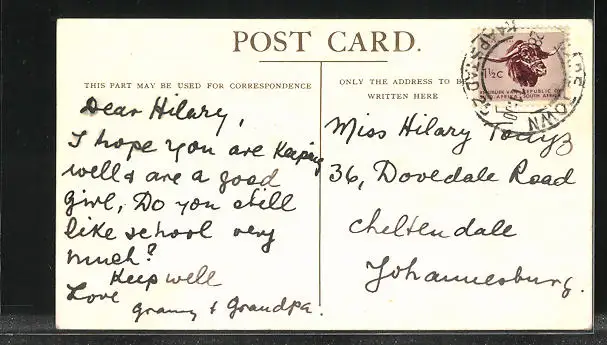 POST CARD.
THIS PART MAY BE USED FOR CORRESPONDENCE
ONLY THE ADDRESS TO BE
WRITTEN HERE
Dear Hilary,
I hope you are keeping
well & are a good
girl, Do you still
like school very
much?
Keep well
Love
granny & Grandpa.
Miss Hilary
36, Dovedale Road
Cheltendale
Johannesburg.
1½C
REPUBLIEK VAN REPUBLIC OF
SUID-AFRIKA SOUTH AFRICA
KAAPSTAD
CAPE TOWN